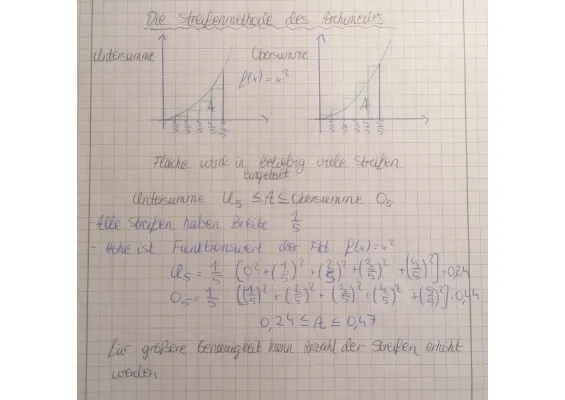 Die Streifenmethode des Archimedes
Untersumme
Obersumme
f(x)=x²
A
A
1/5 2/5 3/5 4/5 5/5
1/5 2/5 3/5 4/5 5/5
Fläche wird in beliebig viele Streifen
eingeteilt
Untersumme U₅ ≤ A ≤ Obersumme O₅
- Alle Streifen haben Breite 1/5
- Höhe ist Funktionswert der Fkt. f(x)=x²
U₅ = 1/5 [0²+(1/5)²+(2/5)²+(3/5)²+(4/5)²]=0,24
O₅ = 1/5 [(1/5)²+(2/5)²+(3/5)²+(4/5)²+(5/5)²]=0,44
0,24 ≤ A ≤ 0,47
Für größere Genauigkeit kann Anzahl der Streifen erhöht
werden